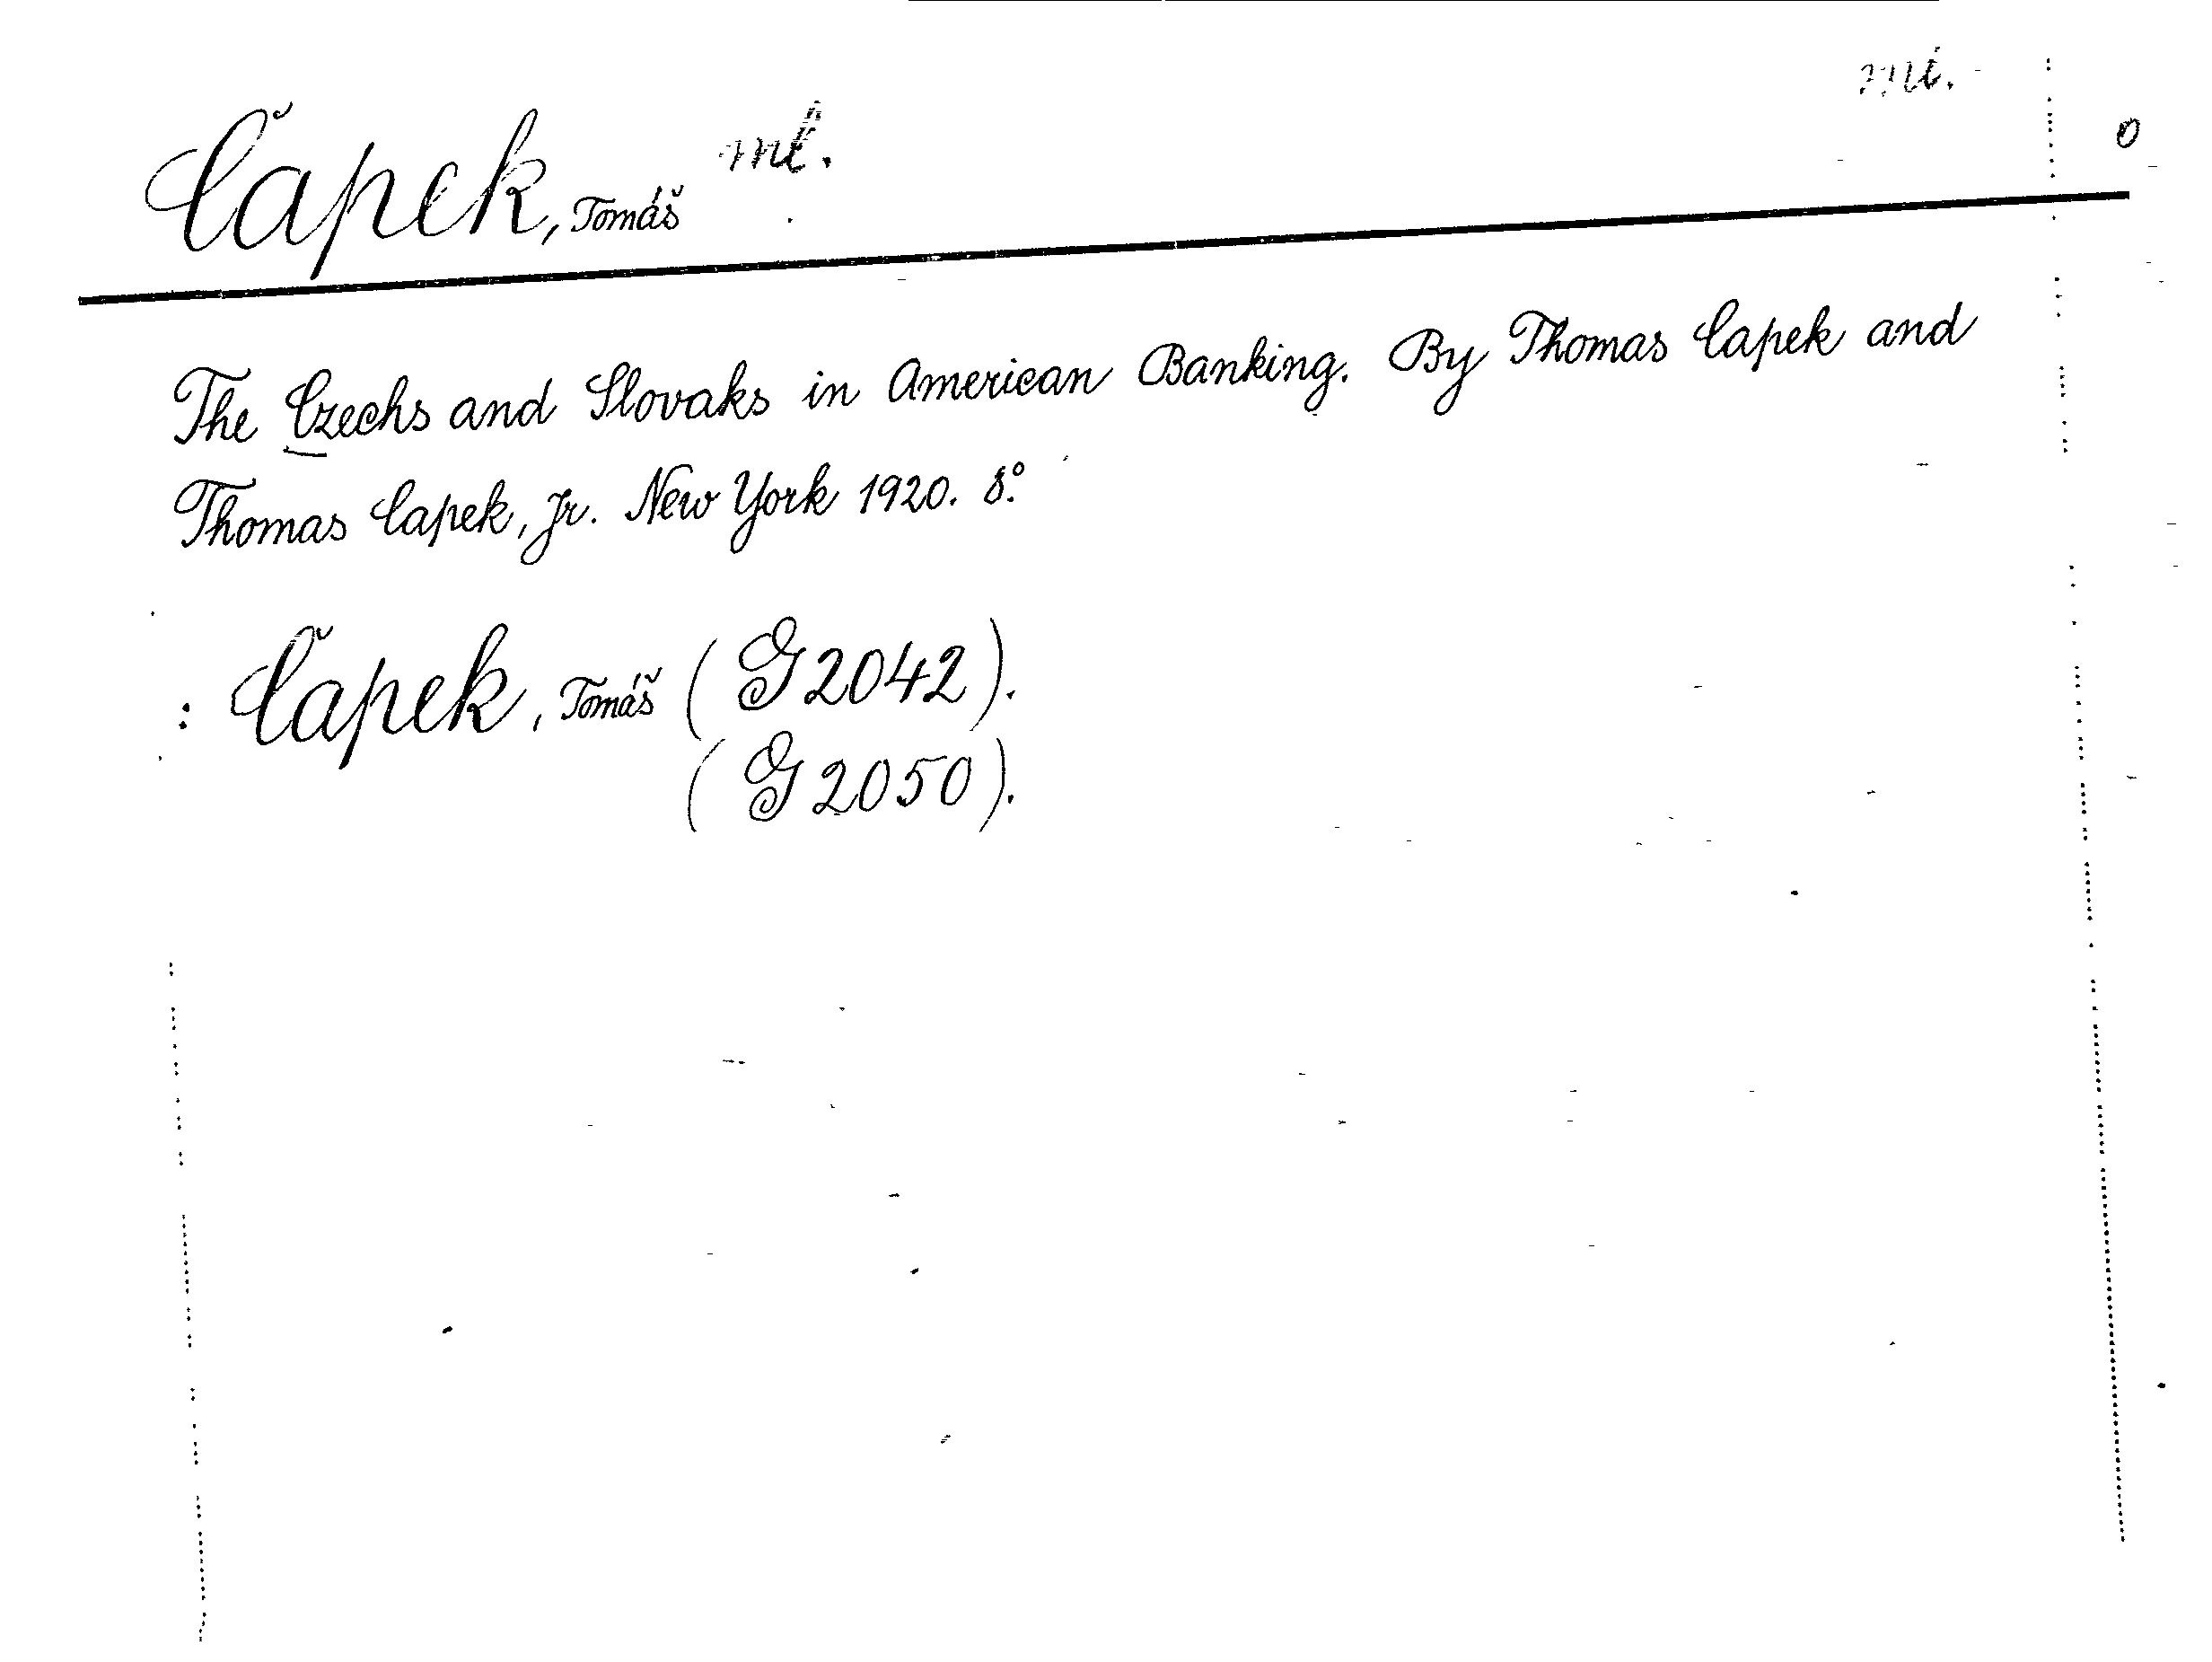 ml.
Čapek, Tomáš ml. 0
The Czechs and Slovaks in American Banking. By Thomas Čapek and
Thomas Čapek, Jr. New York 1920. 8°.
: Čapek, Tomáš (G 2042).
(G 2050).